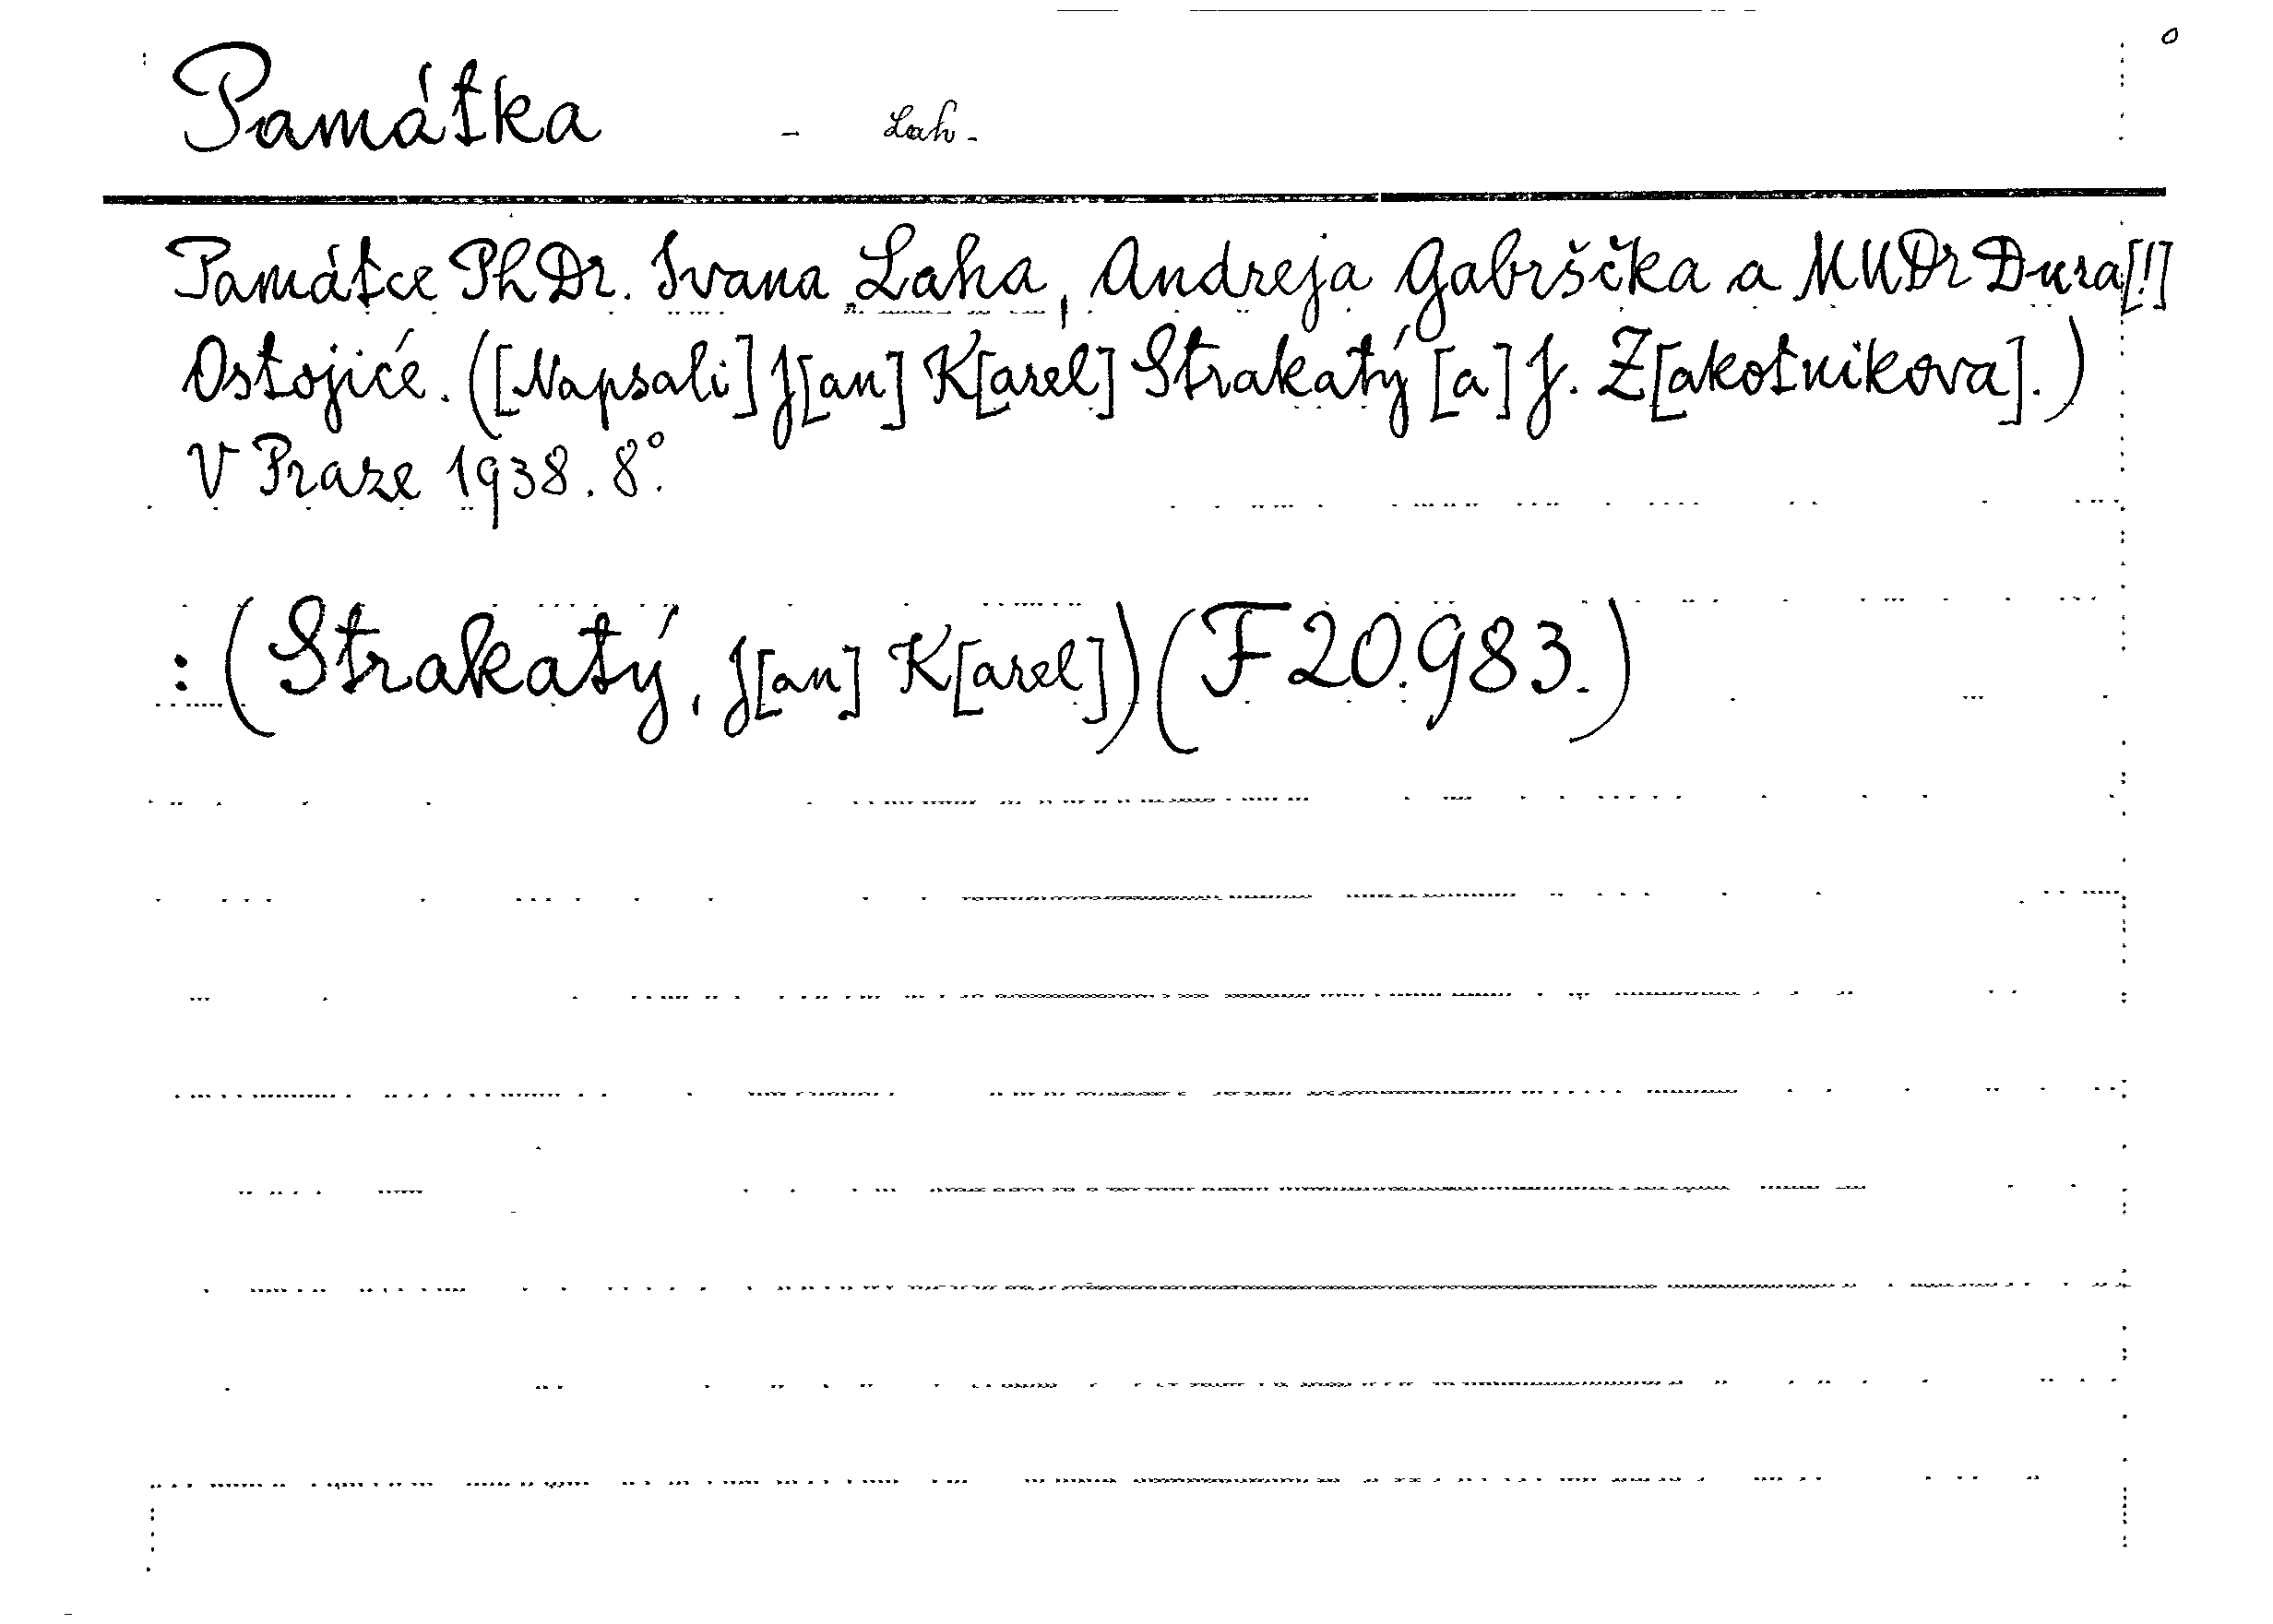 Památka - Lah -
Památce PhDr. Ivana Laha, Andreja Gabrščka a MUDr Đura[!]
Ostojiće. ([Napsali] J[an] K[arel] Strakatý [a] J. Z[akotnikova].)
V Praze 1938. 8°.
: (Strakatý, J[an] K[arel]) (F 20.983.)